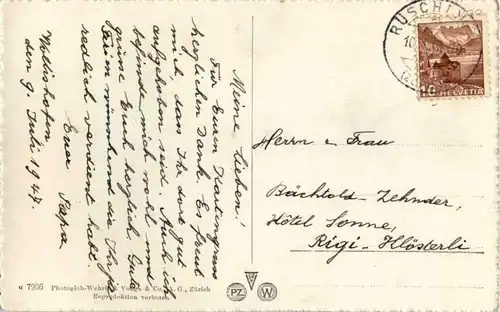 Meine Lieben!
Für Euern Kartengruss
herzlichen Dank. Es freut
mich, dass Ihr dort gut
aufgehoben seid. Auch ich
befinde mich wohl und
grüsse Euch herzlich. Gute
Ferien wünschend die Ihr
redlich verdient habt.
Euer Papa.
Wollishofen
den 9. Juli 1947.
Herrn u. Frau
Bächtold-Zehnder,
Hôtel Sonne,
Rigi-Klösterli
RÜSCHLI
10
HELVETIA
10.
u 7906 Photoglob-Wehrli & Vouga & Co. A.G., Zürich
Reproduktion verboten
PZ
W